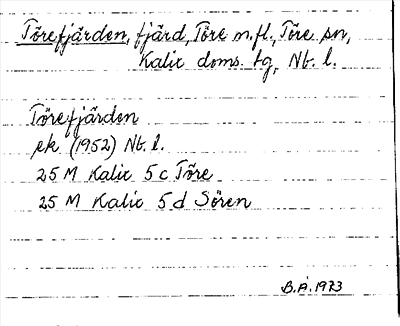 Törefjärden, fjärd, Töre m.fl., Töre sn,
Kalix doms. tg, Nb. l.
Törefjärden
ek (1952) Nb. l.
25 M Kalix 5 c Töre
25 M Kalix 5 d Sören
B.Å. 1973